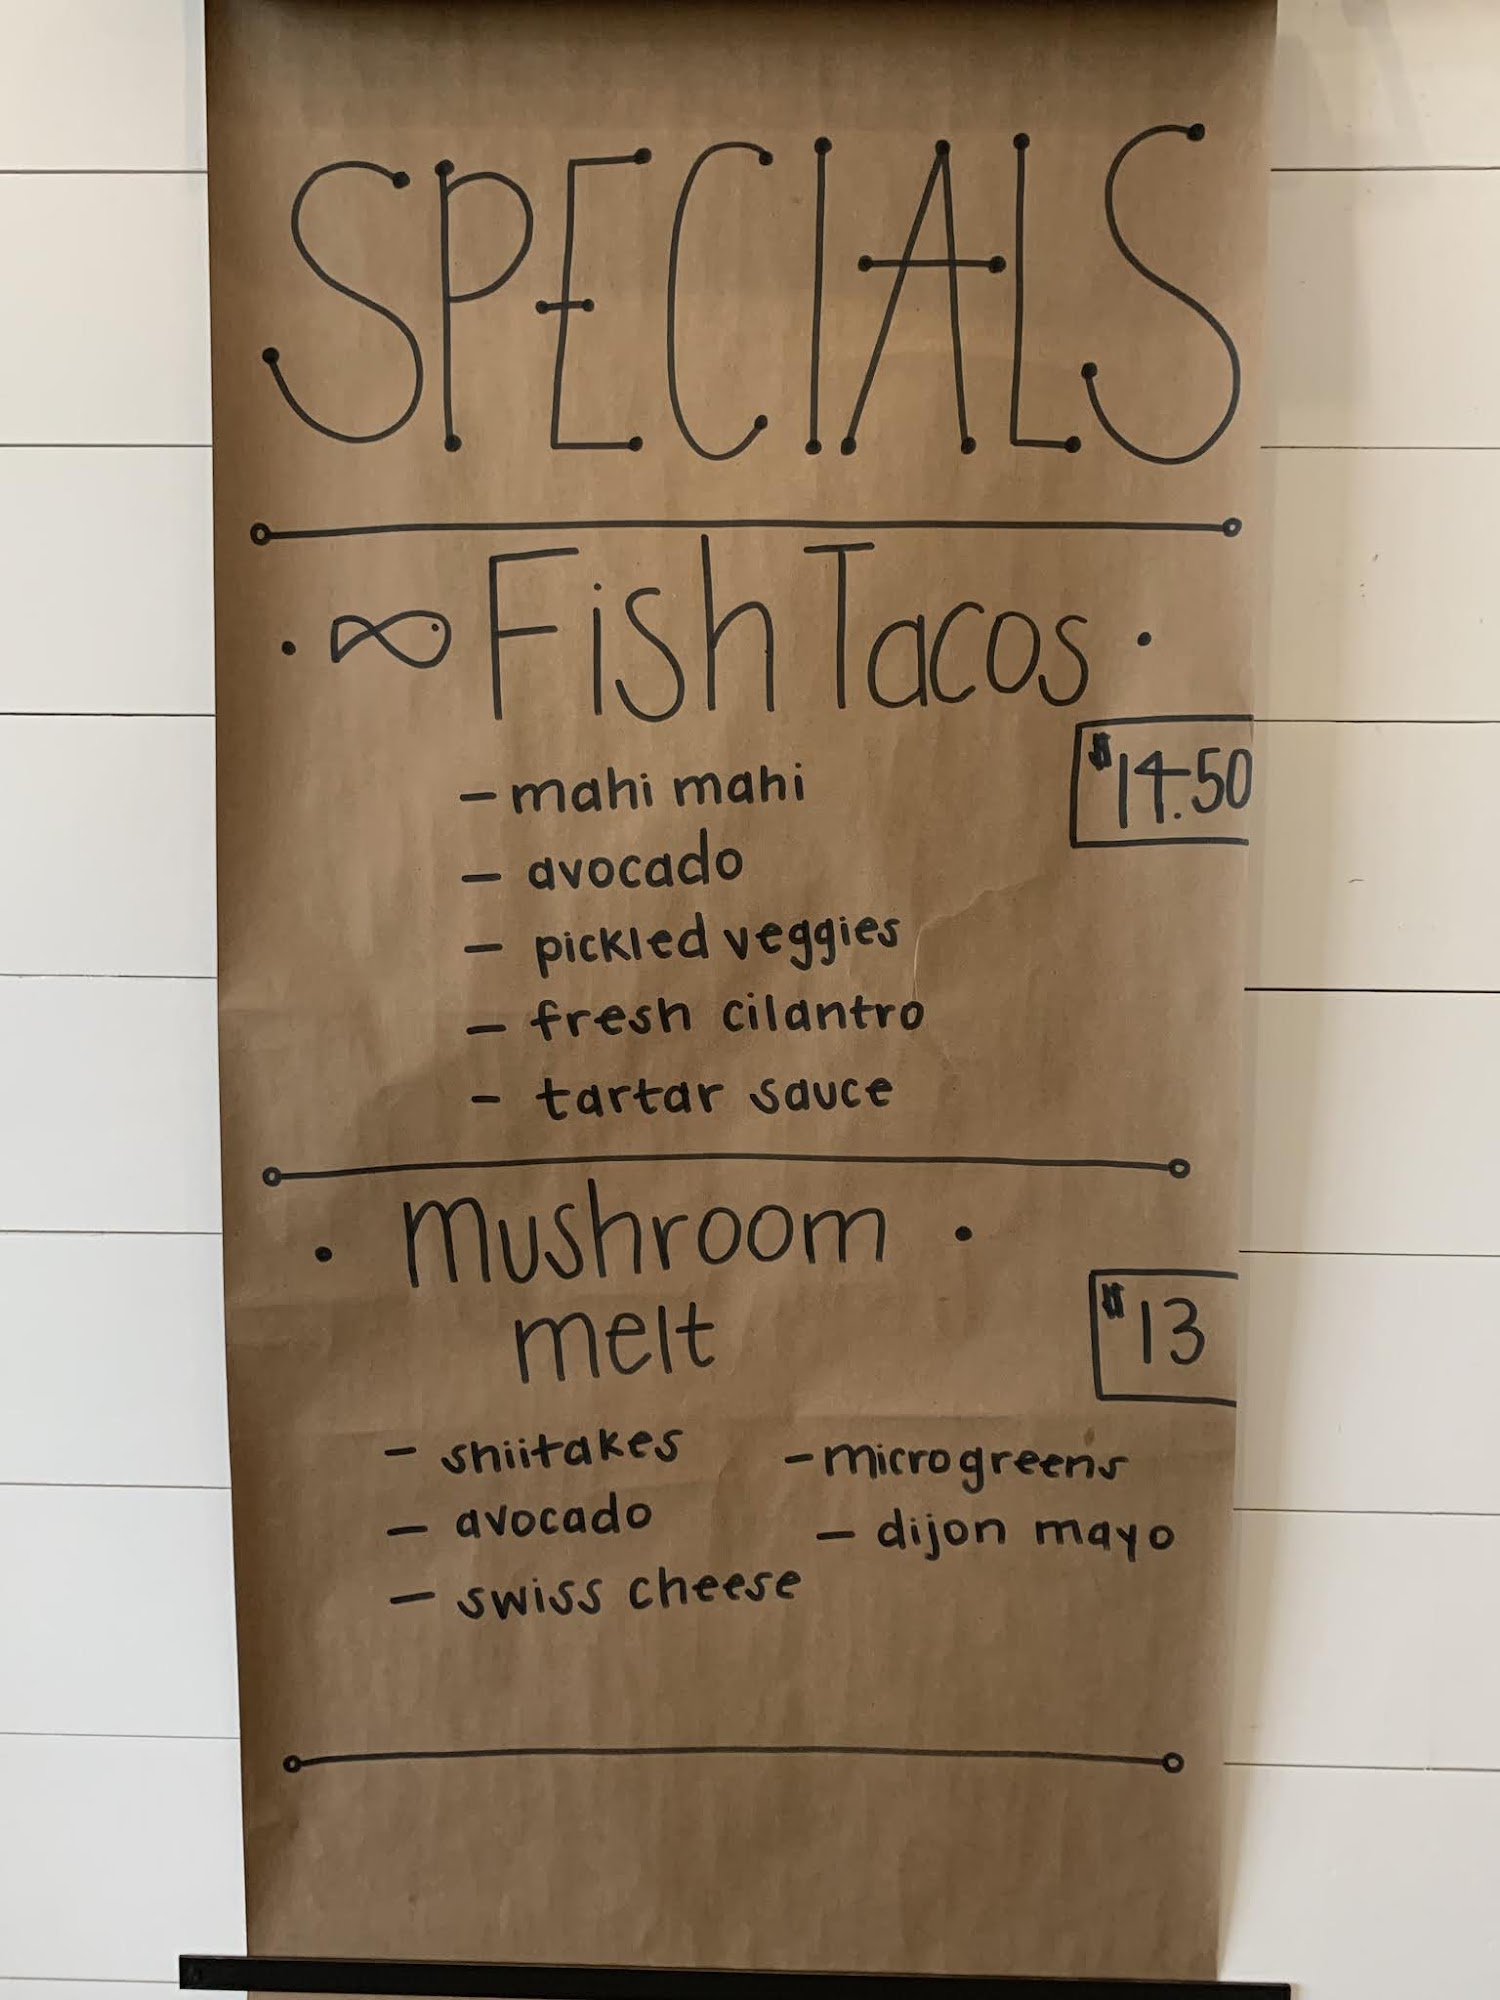 SPECIALS
Fish Tacos
$14.50
- mahi mahi
- avocado
- pickled veggies
- fresh cilantro
- tartar sauce
mushroom
melt
$13
- shiitakes
- avocado
- swiss cheese
- microgreens
- dijon mayo